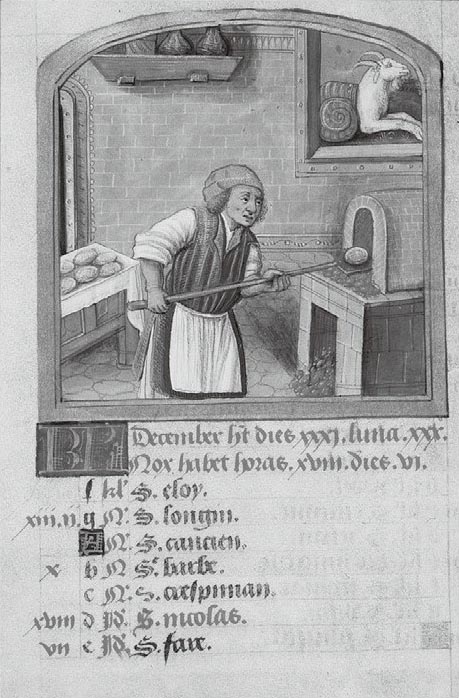 KL December ht dies xxxi. luna. xxx.
Nox habet horas. xviii. dies. vi.
f kl' S. eloy.
xiii. N. g N. S. longin.
A N. S. cancien.
x b N S.e barbe.
c N. S. crespinian.
xviii d Id. S. nicolas.
vii e Id. S. fare.